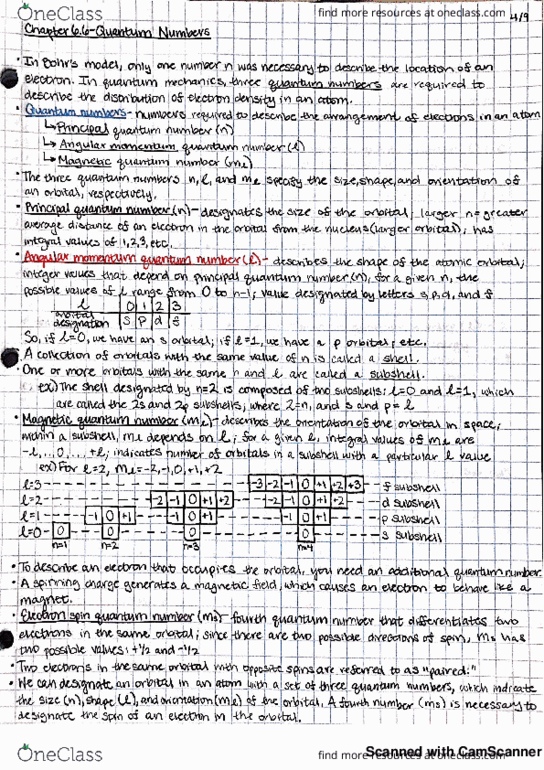 OneClass
find more resources at oneclass.com
4/9
Chapter 6.6 - Quantum Numbers
• In Bohr's model, only one number n was necessary to describe the location of an
electron. In quantum mechanics, three quantum numbers are required to
describe the distribution of electron density in an atom.
• Quantum numbers - numbers required to describe the arrangement of electrons in an atom
↳ Principal quantum number (n)
↳ Angular momentum quantum number (ℓ)
↳ Magnetic quantum number (mℓ)
• The three quantum numbers n, ℓ, and mℓ specify the size, shape, and orientation of
an orbital, respectively.
• Principal quantum number (n) - designates the size of the orbital; larger n = greater
average distance of an electron in the orbital from the nucleus (larger orbital); has
integral values of 1, 2, 3, etc.
• Angular momentum quantum number (ℓ) - describes the shape of the atomic orbital;
integer values that depend on principal quantum number (n), for a given n, the
possible values of ℓ range from 0 to n-1; value designated by letters s, p, d, and f
ℓ 0 1 2 3
orbital designation s p d f
So, if ℓ=0, we have an s orbital; if ℓ=1, we have a p orbital, etc.
• A collection of orbitals with the same value of n is called a shell.
• One or more orbitals with the same n and ℓ are called a subshell.
ex) The shell designated by n=2 is composed of two subshells: ℓ=0 and ℓ=1, which
are called the 2s and 2p subshells, where 2=n, and s and p = ℓ
• Magnetic quantum number (mℓ) - describes the orientation of the orbital in space;
within a subshell, mℓ depends on ℓ; for a given ℓ, integral values of mℓ are
-ℓ,...0,...+ℓ; indicates number of orbitals in a subshell with a particular ℓ value
ex) For ℓ=2, mℓ=-2,-1,0,+1,+2
ℓ=3 -3 -2 -1 0 +1 +2 +3 f subshell
ℓ=2 -2 -1 0 +1 +2 -2 -1 0 +1 +2 d subshell
ℓ=1 -1 0 +1 -1 0 +1 -1 0 +1 p subshell
ℓ=0 0 0 0 0 s subshell
n=1 n=2 n=3 n=4
• To describe an electron that occupies the orbital, you need an additional quantum number.
• A spinning charge generates a magnetic field, which causes an electron to behave like a
magnet.
• Electron spin quantum number (ms) - fourth quantum number that differentiates two
electrons in the same orbital; since there are two possible directions of spin, ms has
two possible values: +1/2 and -1/2
• Two electrons in the same orbital with opposite spins are referred to as "paired."
• We can designate an orbital in an atom with a set of three quantum numbers, which indicate
the size (n), shape (ℓ), and orientation (mℓ) of the orbital. A fourth number (ms) is necessary to
designate the spin of an electron in the orbital.
OneClass
find more resources at oneclass.com
Scanned with CamScanner